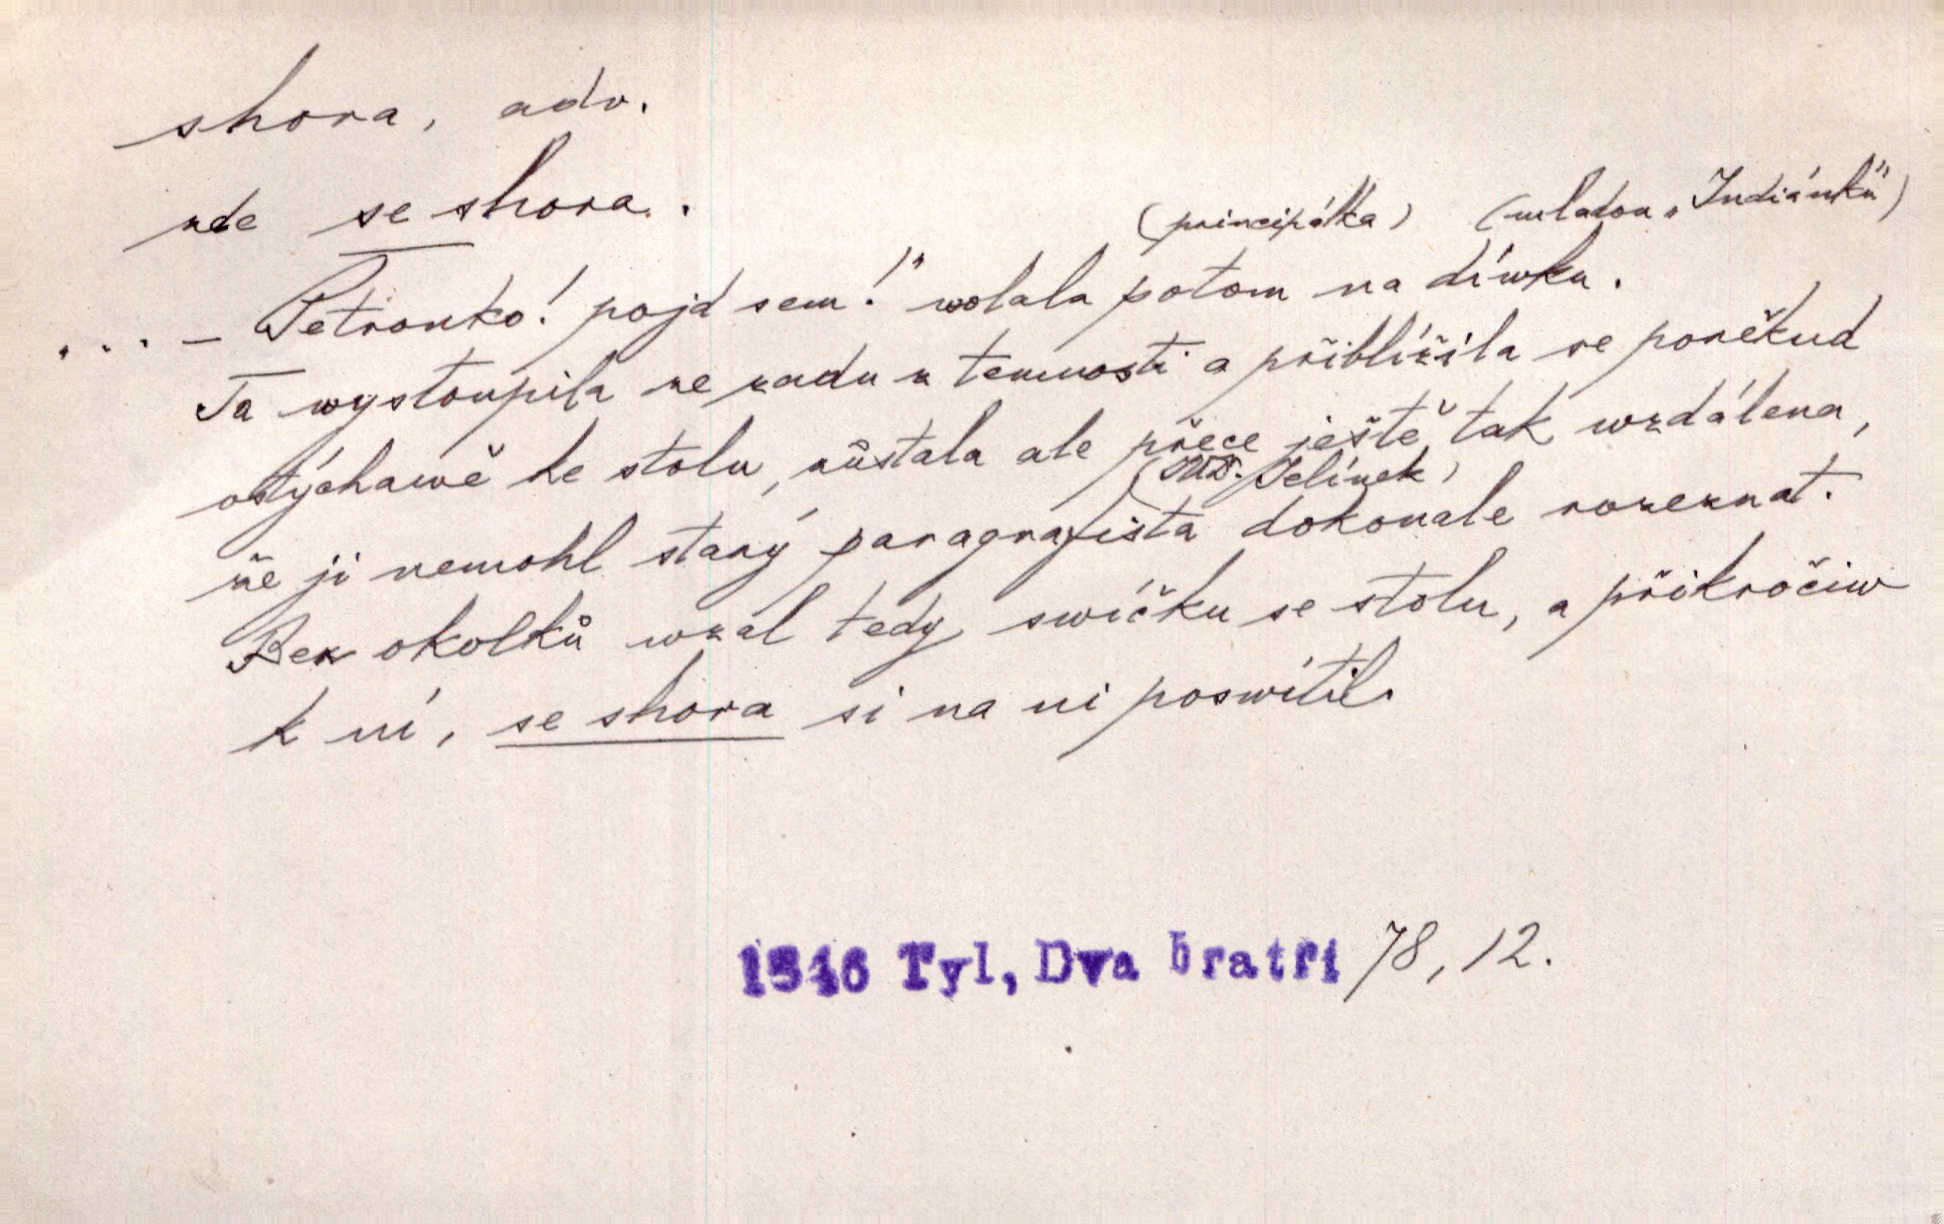 shora, adv.
zde se shora.
(principálka) (mladou „Indiánku")
... – Petronko! pojď sem!" wolala potom na díwku.
Ta wystoupila ze zadu z temnosti a přiblížila se poněkud
ostýchawě ke stolu, zůstala ale přece ještě tak wzdálena,
(JUD. Jelínek)
že ji nemohl starý paragrafista dokonale rozeznat.
Bez okolků wzal tedy swíčku se stolu, a přikročiw
k ní, se shora si na ni poswítil.
1846 Tyl, Dva bratři 78, 12.